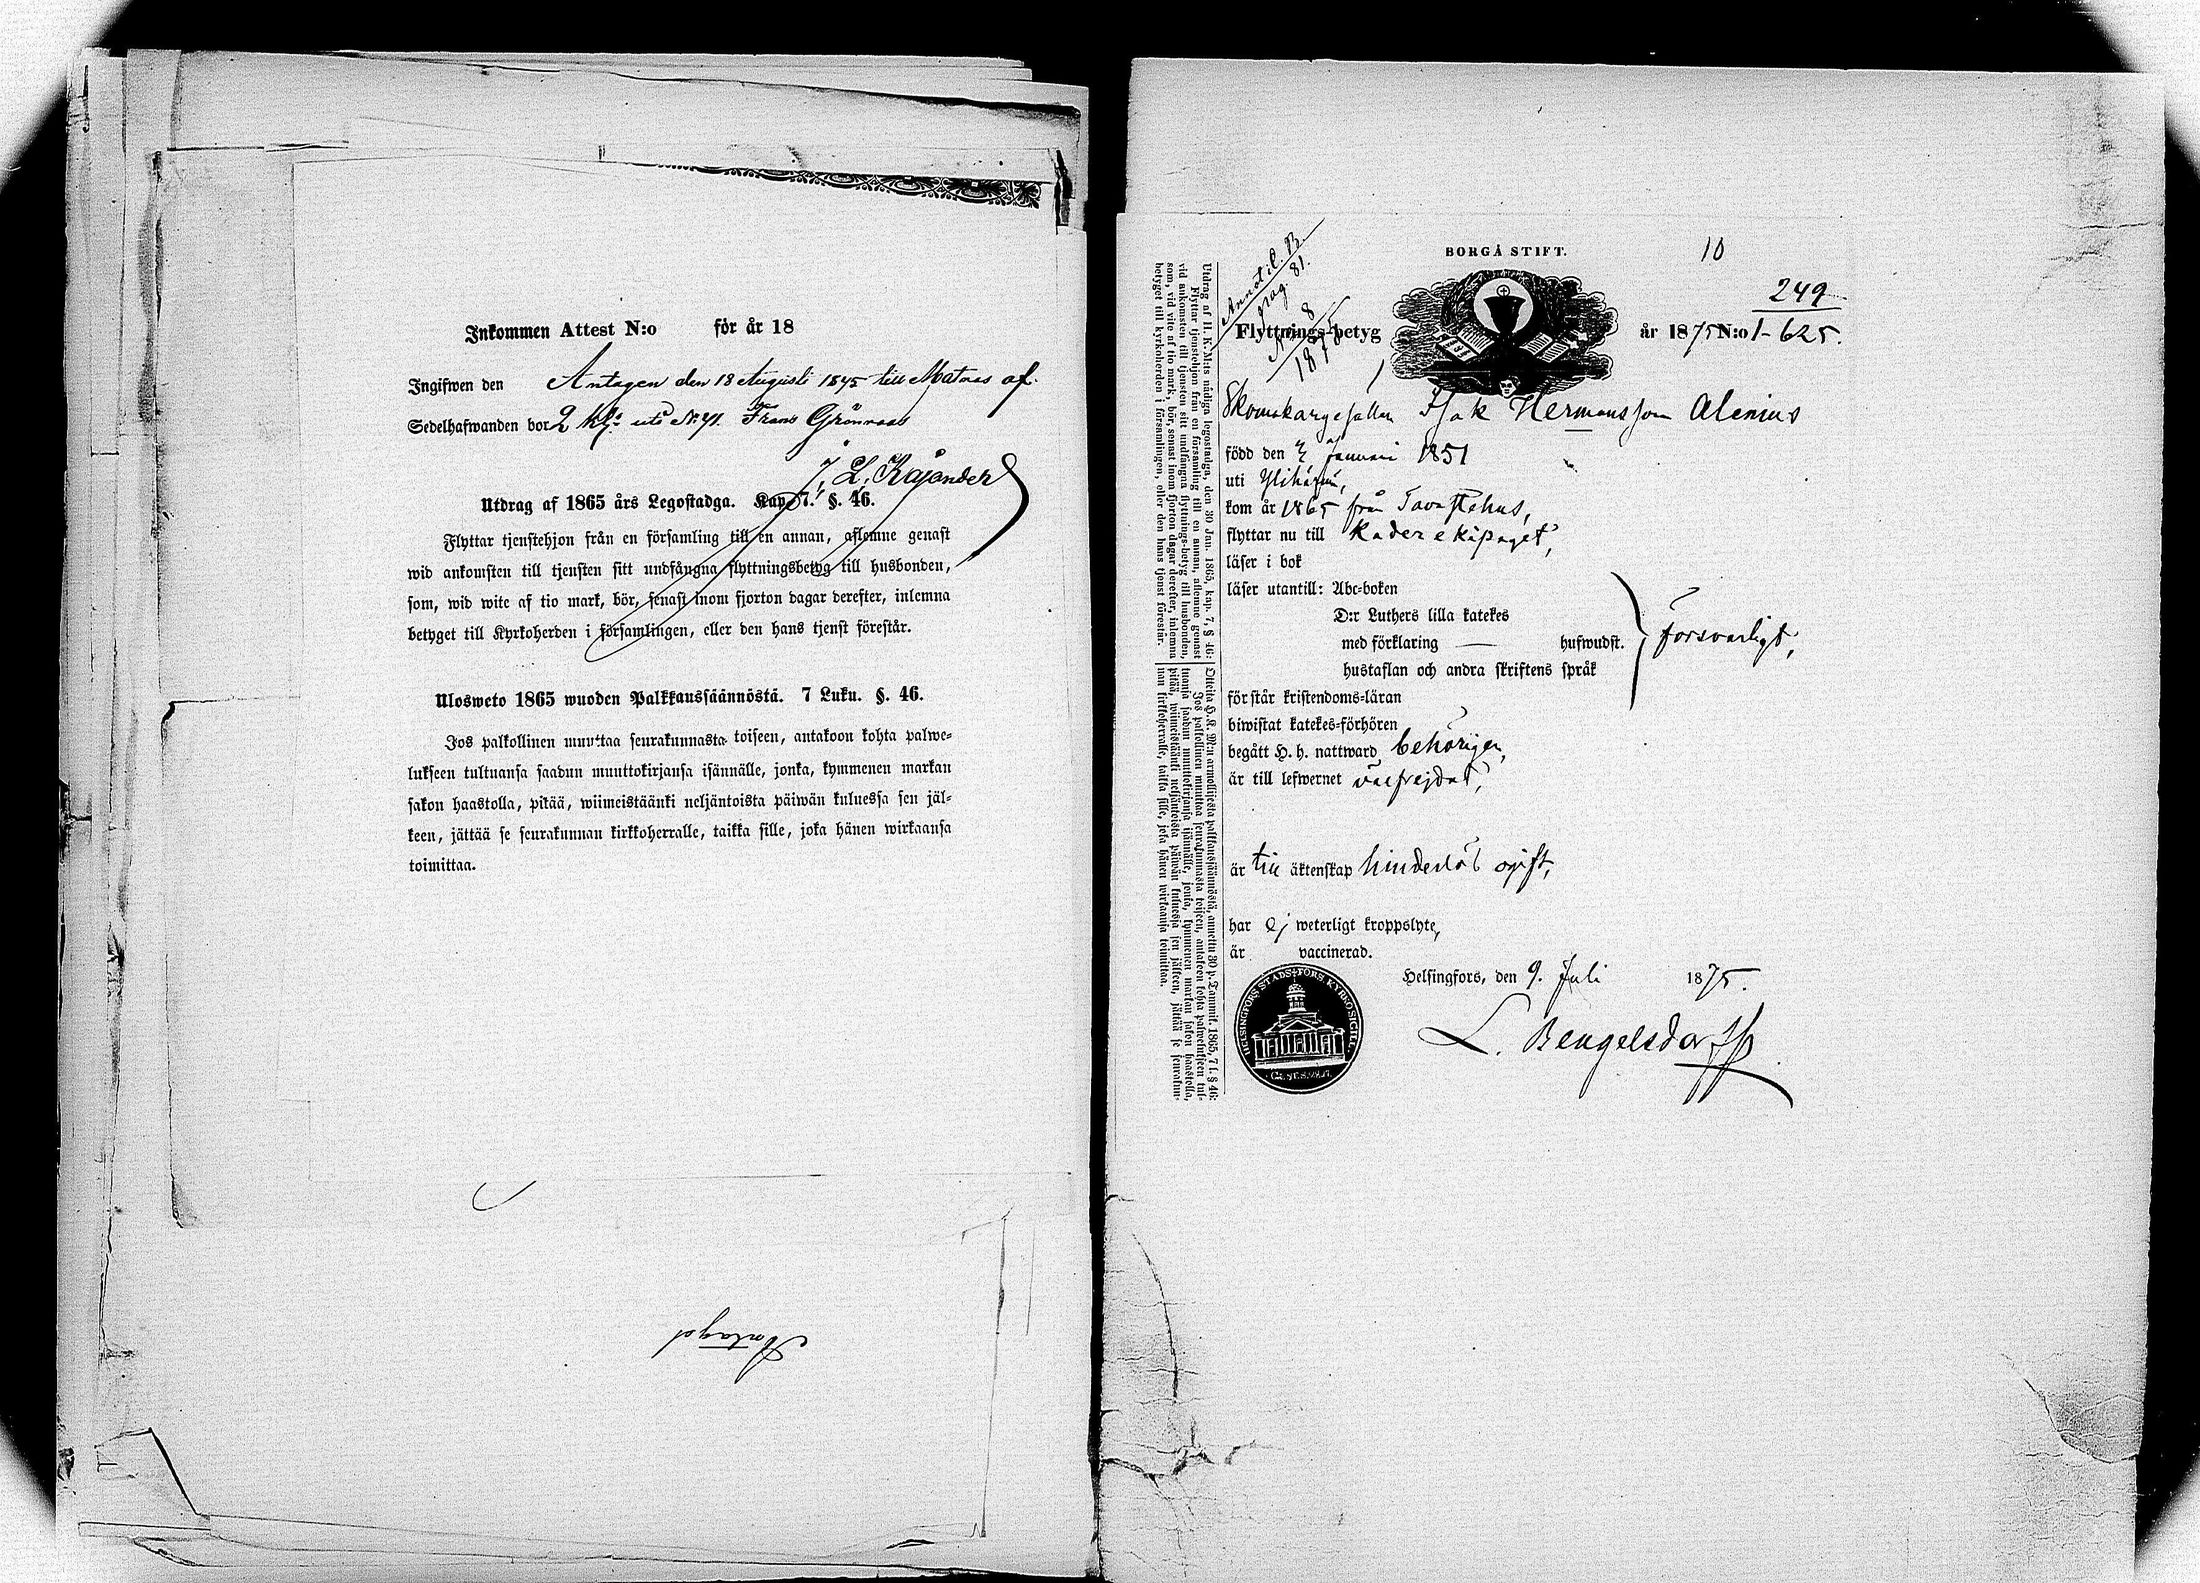 Inkommen Attest N:o för år 18
Ingifwen den Antagen den 18 Augusti 1875 till Matros af
Sedelhafwanden bor 2 Kl: uti N:o 41. Frans Grönroos
J. L. Kajander
Utdrag af 1865 års Legostadga. Kap. 7. §. 46.
Flyttar tjenstehjon från en församling till en annan, aflemne genast
wid ankomsten till tjensten sitt undfångna flyttningsbetyg till husbonden,
som, wid wite af tio mark, bör, senast inom fjorton dagar derefter, inlemna
betyget till Kyrkoherden i församlingen, eller den hans tjenst förestår.
Ulosweto 1865 wuoden Palkkaussäännöstä. 7 Luku. §. 46.
Jos palkollinen muuttaa seurakunnasta toiseen, antakoon kohta palwe-
lukseen tultuansa saadun muuttokirjansa isännälle, jonka, kymmenen markan
sakon haastolla, pitää, wiimeistäänki neljäntoista päiwän kuluessa sen jäl-
keen, jättää se seurakunnan kirkkoherralle, taikka sille, joka hänen wirkaansa
toimittaa.
Antagd
BORGÅ STIFT.
10
249
Annot i l. B.
pag. 81.
N:o 8
1875
Flyttnings-betyg år 1875 N:o 1-625.
Skomakargesällen Isak Hermansson Alenius
född den 3 Januari 1851
uti Ylihärmä,
kom år 1865 från Tavastehus,
flyttar nu till Kaderekipaget,
läser i bok
läser utantill: Abc-boken
D:r Luthers lilla katekes
med förklaring — hufwudst.
hustaflan och andra skriftens språk
försvarligt,
förstår kristendoms-läran
biwistat katekes-förhören
begått H. h. nattward behörigen,
är till lefwernet välfrejdad,
är till äktenskap hinderlös ogift,
har ej weterligt kroppslyte,
är vaccinerad.
Helsingfors, den 9. Juli 1875.
L. Bengelsdorff
HELSINGFORS STADS FÖRS. KYRKOSIGILL
Utdrag af H. K. M:ts nådiga legostadga, den 30 Jan. 1865, kap. 7, § 46:
Flyttar tjenstehjon från en församling till en annan, aflemne genast
vid ankomsten till tjensten sitt undfångna flyttnings-betyg till husbonden,
som, vid vite af tio mark, bör, senast inom fjorton dagar derefter, inlemna
betyget till kyrkoherden i församlingen, eller den hans tjenst förestår.
Otteita H. K. M:n armollisesta palkkaussäännöstä, annettu 30 p. Tammik. 1865, 7 l. § 46:
Jos palkollinen muuttaa seurakunnasta toiseen, antakoon kohta palwelukseen tul-
tuansa saadun muuttokirjansa isännälle, jonka, kymmenen markan sakon haastolla,
pitää, wiimeistäänki neljäntoista päiwän kuluessa sen jälkeen, jättää se seurakun-
nan kirkkoherralle, taikka sille, joka hänen wirkaansa toimittaa.